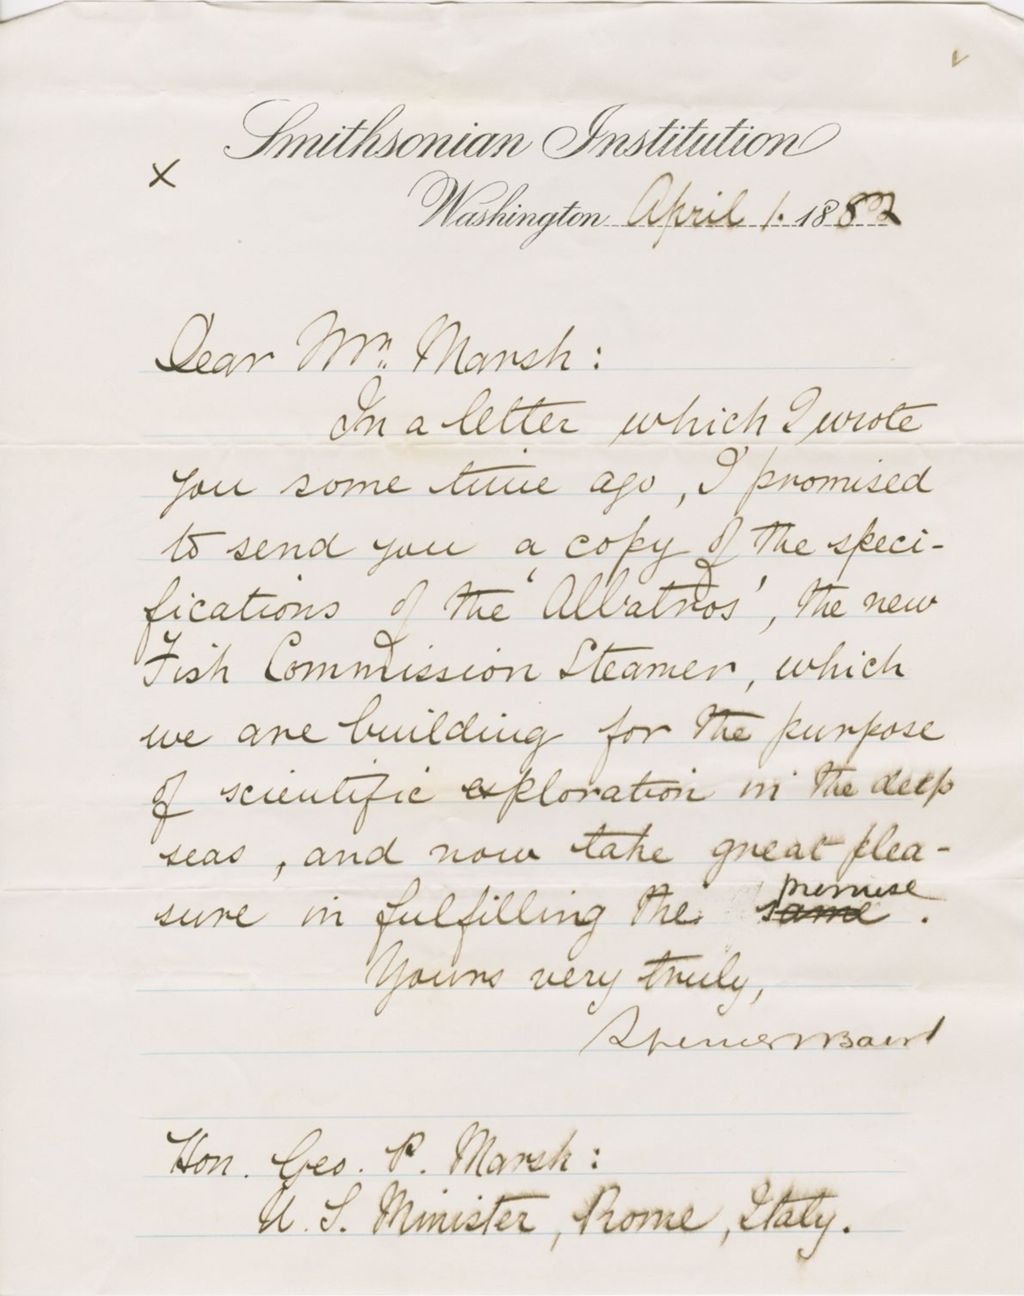 Smithsonian Institution
x
Washington April 1. 1882
Dear Mr. Marsh:
In a letter which I wrote
you some time ago, I promised
to send you a copy of the speci-
fications of the 'Albatros', the new
Fish Commission Steamer, which
we are building for the purpose
of scientific exploration in the deep
seas, and now take great plea-
sure in fulfilling the promise
same.
Yours very truly,
Spencer F Baird
Hon. Geo. P. Marsh:
U. S. Minister, Rome, Italy.